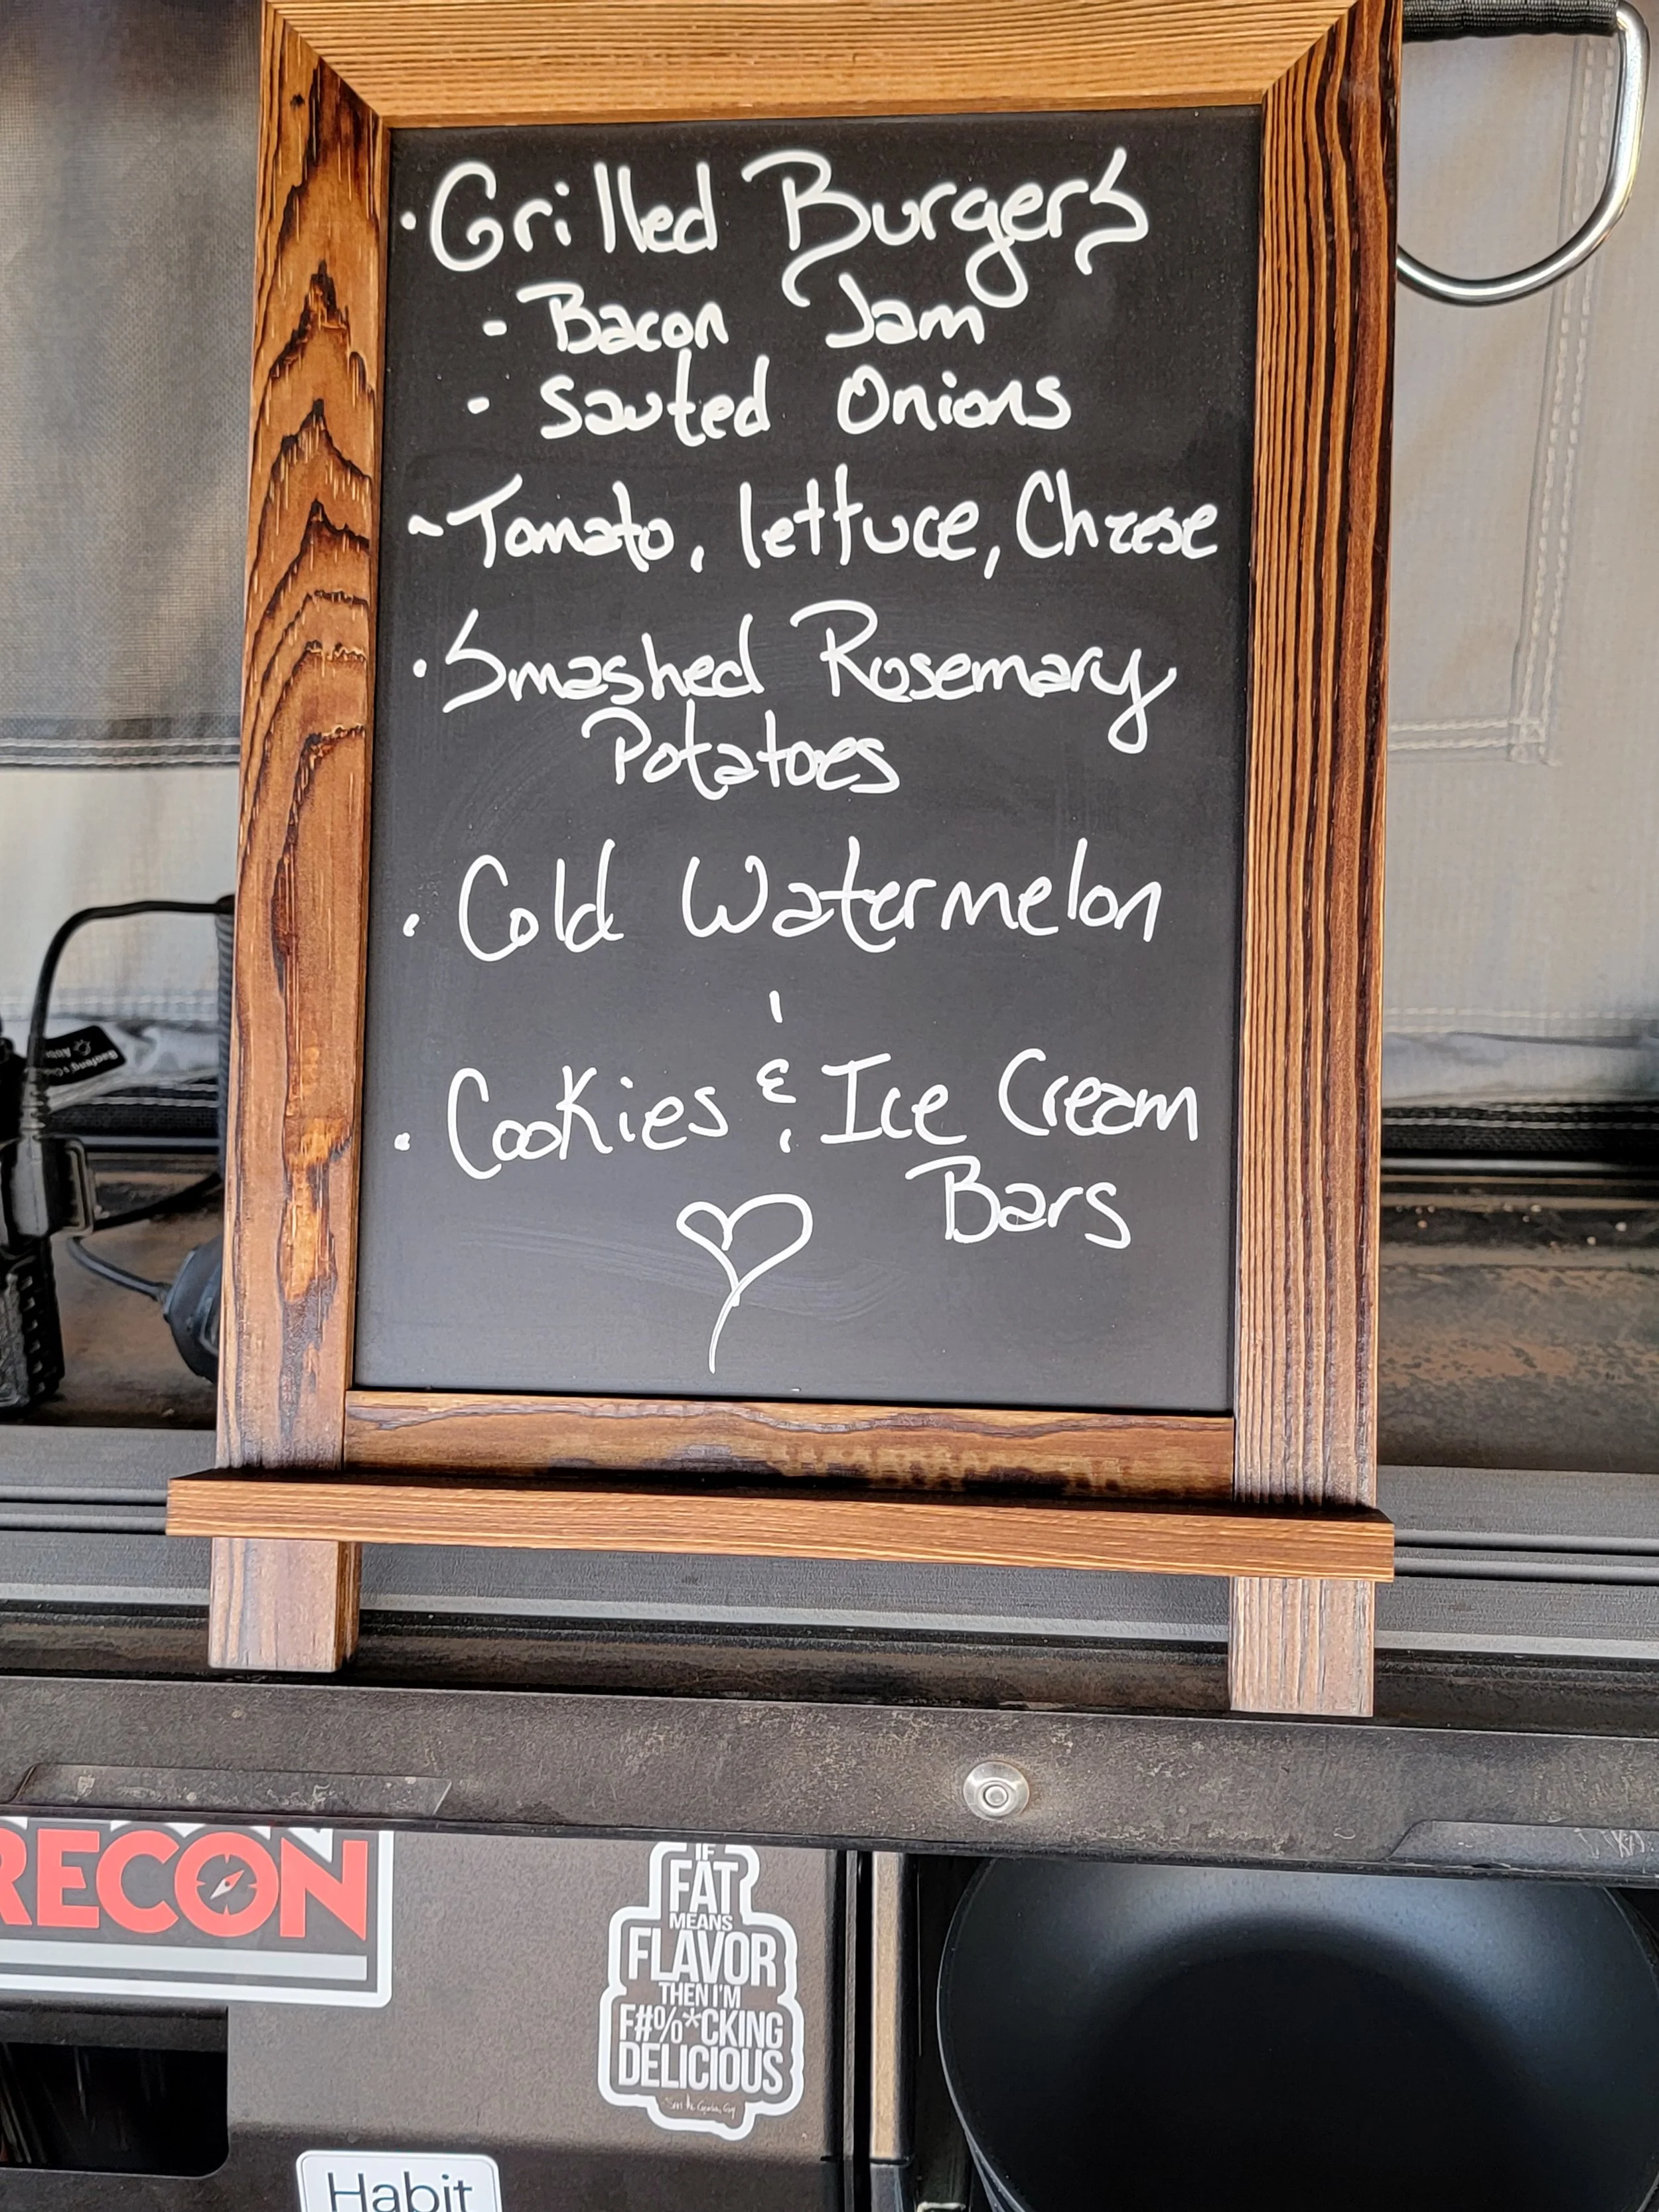 · Grilled Burgers
- Bacon Jam
- Sauted Onions
~ Tomato, lettuce, Cheese
· Smashed Rosemary
Potatoes
· Cold Watermelon
· Cookies & Ice Cream
Bars
RECON
IF
FAT
MEANS
FLAVOR
THEN I'M
F#%*CKING
DELICIOUS
Habit